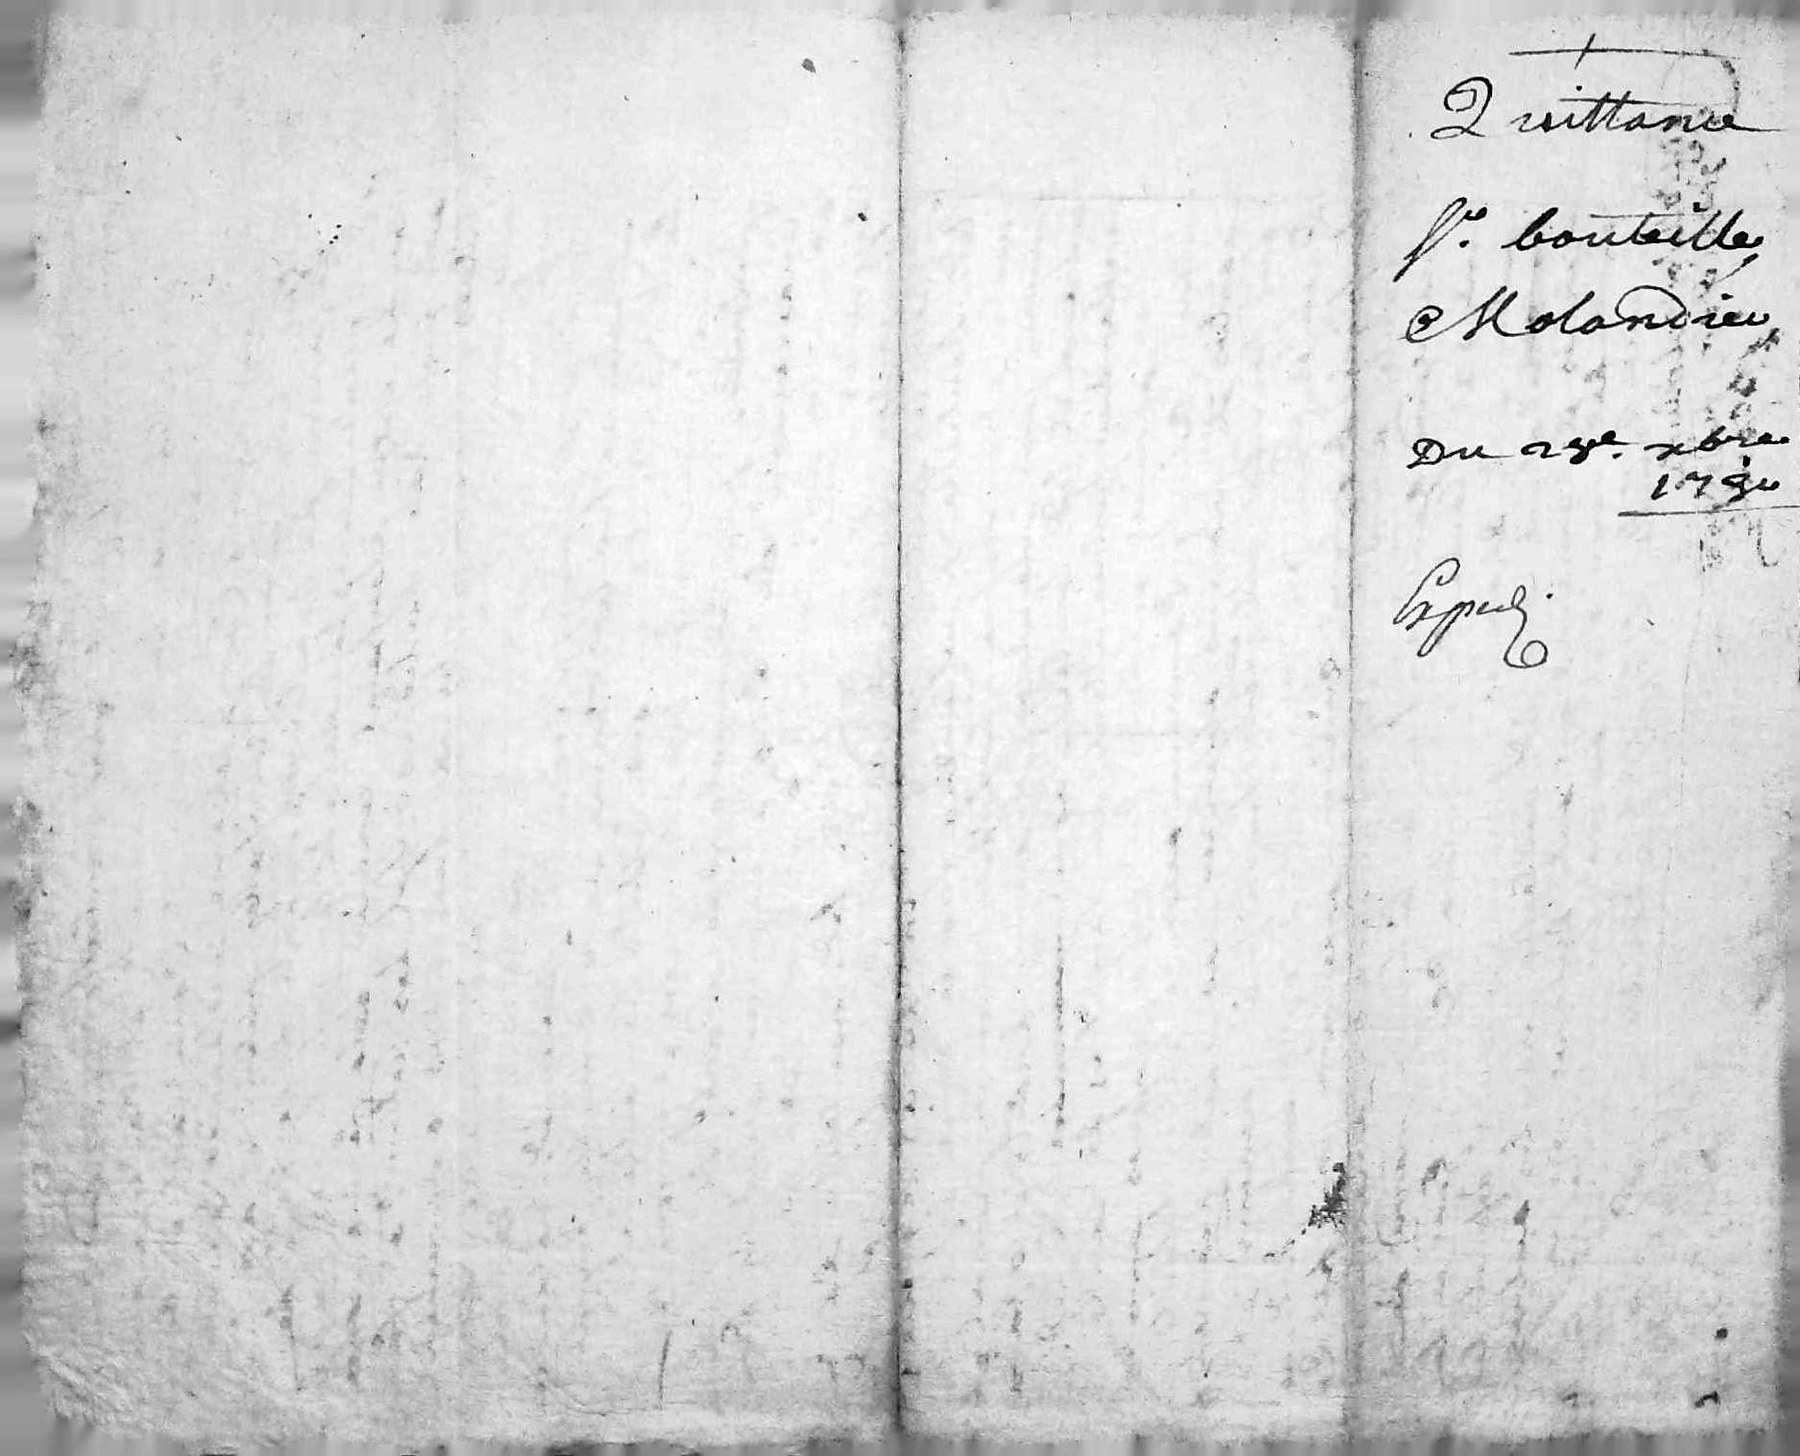 Quittance
Sr. bouteille
Molandier
Du 28e. xbre
Expedi.